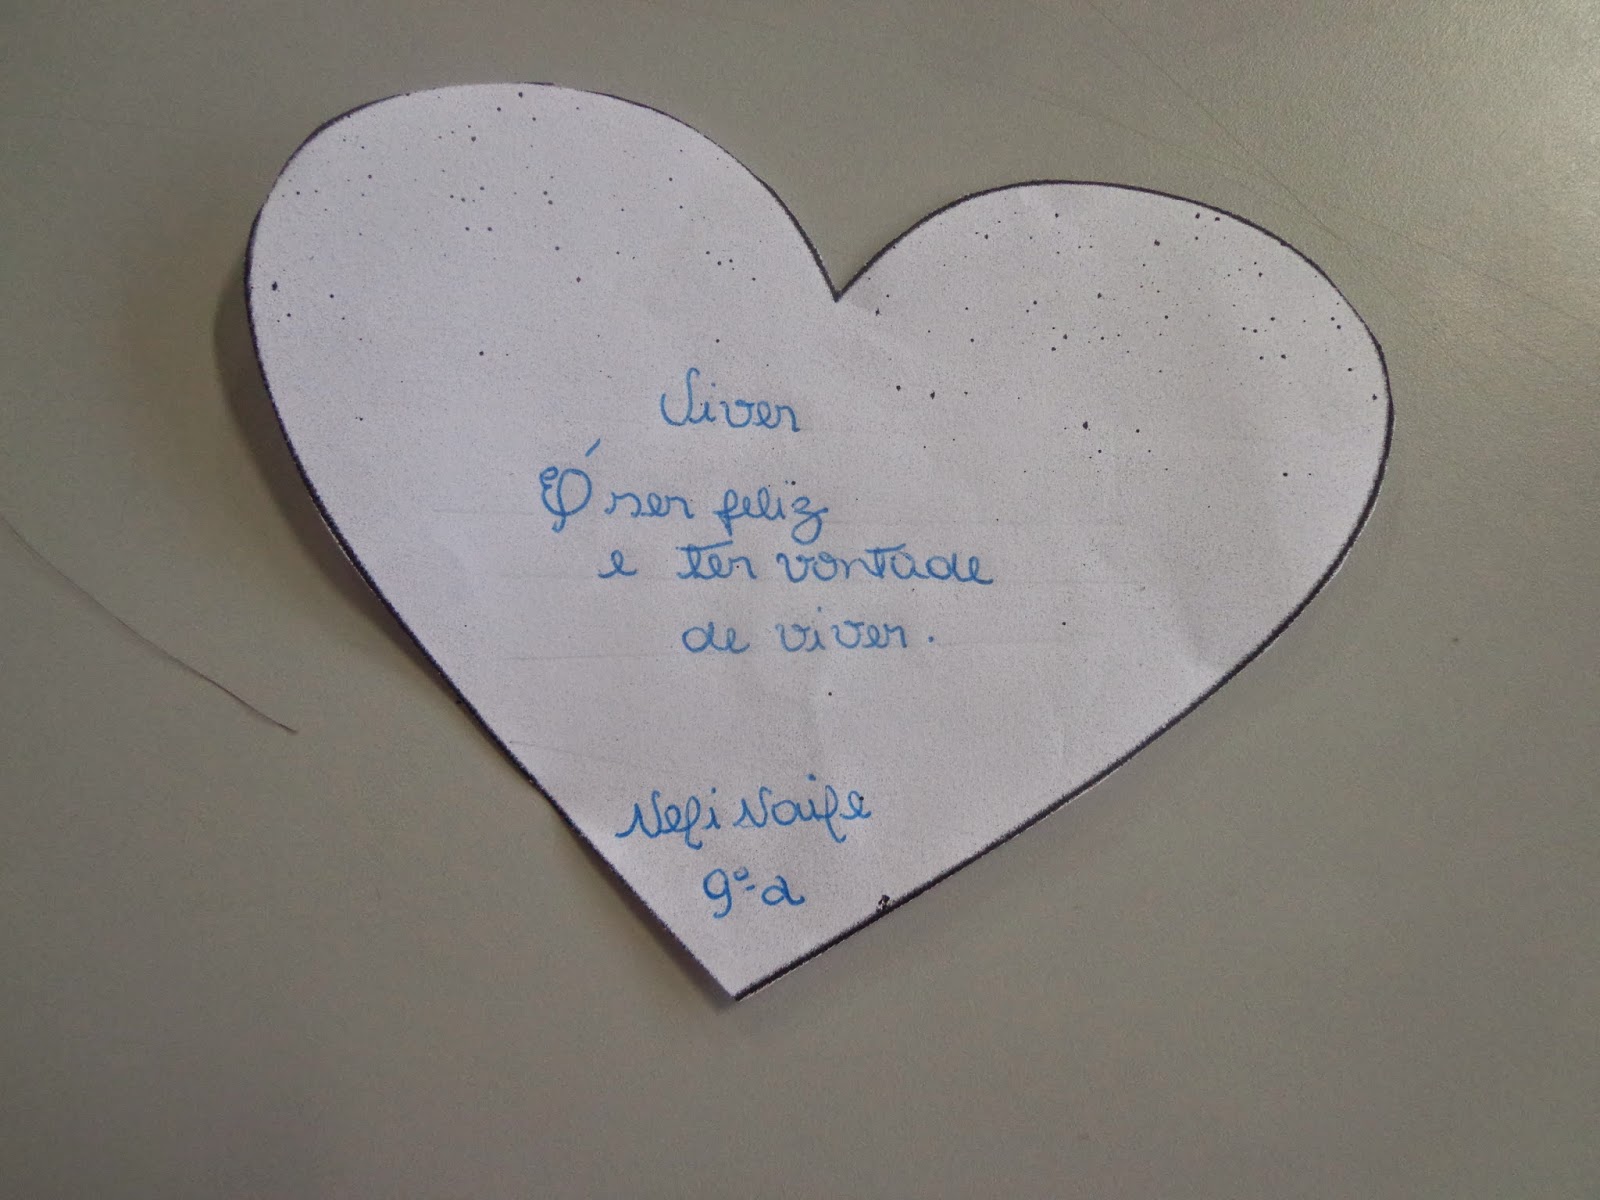 Viver
É ser feliz
e ter vontade
de viver.
Nefi Naife
9º-a